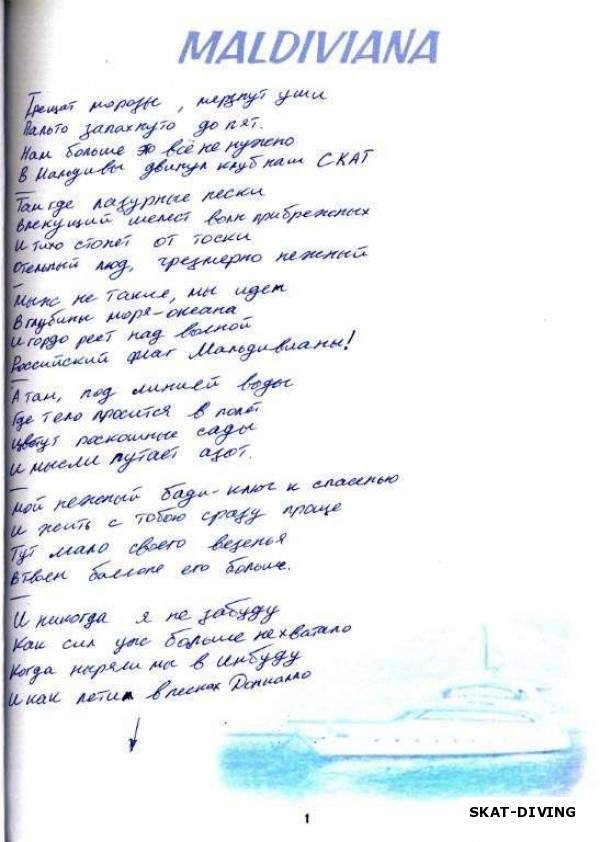 MALDIVIANA
Трещат морозы, мерзнут уши
Пальто запахнуто до пят.
Нам больше это всё не нужно
В Мальдивы двинул клуб наш СКАТ
Там где лазурные пески
Влекущий шелест волн прибрежных
И тихо стонет от тоски
Отельный люд, чрезмерно нежный
Мы ж не такие, мы идем
В глубины моря-океана
И гордо реет над волной
Российский флаг Мальдивианы!
А там, под линией воды
Где тело просится в полёт
Цветут роскошные сады
И мысли путает азот.
Мой нежный бади - ключ к спасенью
И жить с тобою сразу проще
Тут мало своего везенья
В твоем баллоне его больше.
И никогда я не забуду
Как сил уж больше не хватало
Когда ныряли мы в Инбуду
И как летим в песках
1
SKAT-DIVING